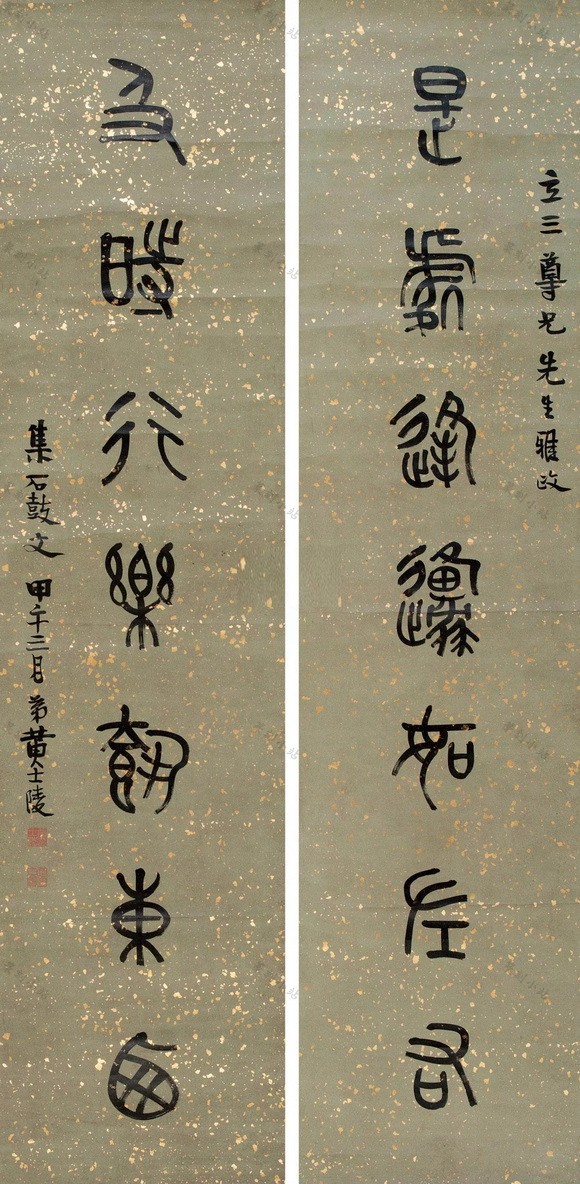 立三尊兄先生雅政
是處逢邍如左右
及時行樂東西
集石鼓文 甲午三月 弟黃士陵